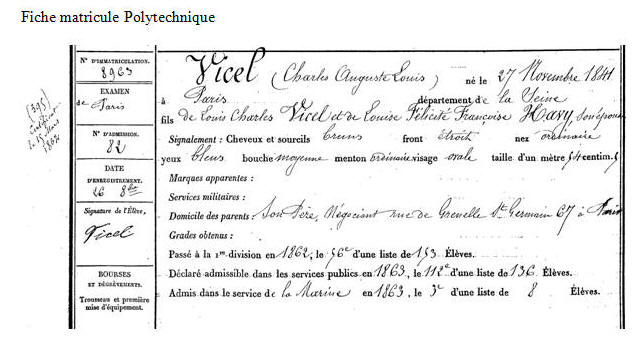 Fiche matricule Polytechnique
N° D'IMMATRICULATION.
8963
EXAMEN
de Paris
N° D'ADMISSION.
82
DATE
D'ENREGISTREMENT.
26 8bre
Signature de l'Élève,
Vicel
BOURSES
ET DÉGRÈVEMENTS.
Trousseau et première
mise d'équipement.
(395)
le 15 Mars
1862
Vicel (Charles Auguste Louis) né le 27 Novembre 1841
à Paris département de la Seine
fils de Louis Charles Vicel et de Louise Félicité Françoise Havy, son épouse
Signalement : Cheveux et sourcils bruns front étroit nez ordinaire
yeux bleus bouche moyenne menton ordinaire visage ovale taille d'un mètre 54 centim.
Marques apparentes :
Services militaires :
Domicile des parents : Son Père, Négociant rue de Grenelle St Germain 67 à Paris
Grades obtenus :
Passé à la 1re division en 1862, le 56e d'une liste de 153 Élèves.
Déclaré admissible dans les services publics en 1863, le 112e d'une liste de 136 Élèves.
Admis dans le service de la Marine en 1863, le 3e d'une liste de 8 Élèves.